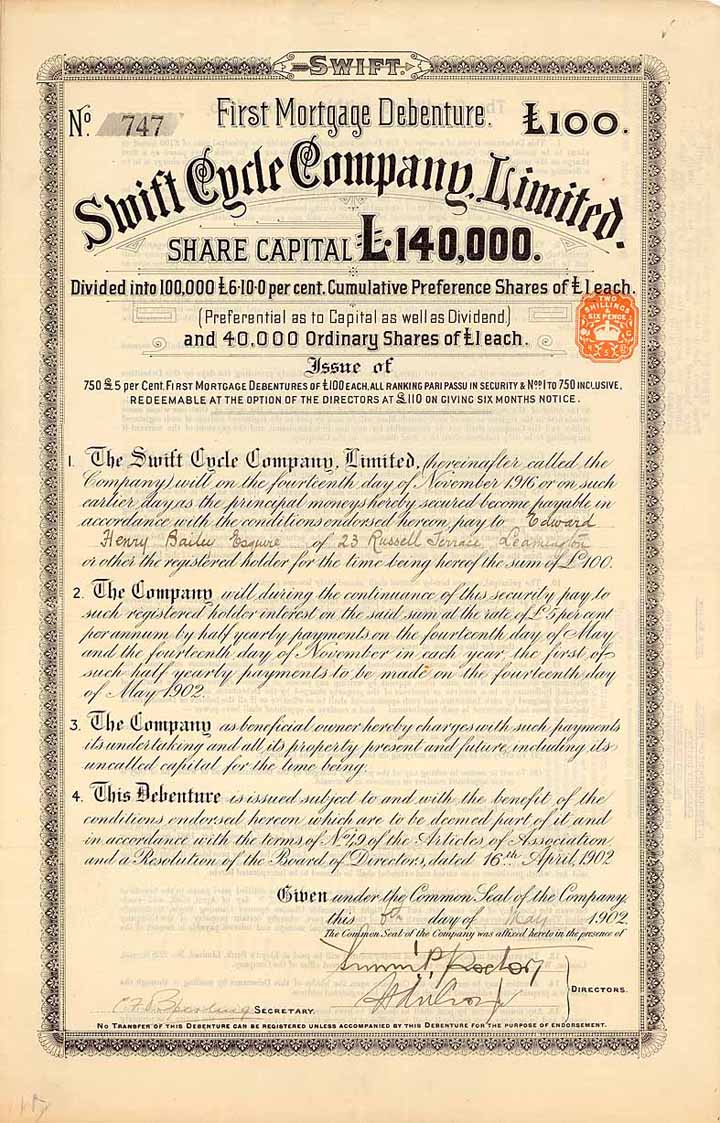 SWIFT.
First Mortgage Debenture.
No 747
£100.
Swift Cycle Company, Limited.
SHARE CAPITAL £140,000.
Divided into 100,000 £6·10·0 per cent. Cumulative Preference Shares of £1 each.
(Preferential as to Capital as well as Dividend,)
and 40,000 Ordinary Shares of £1 each.
TWO SHILLINGS & SIX PENCE
Issue of
750 £5 per Cent. First Mortgage Debentures of £100 each, all ranking pari passu in security & Nos 1 to 750 inclusive,
redeemable at the option of the directors at £110 on giving six months notice.
1. The Swift Cycle Company, Limited, (hereinafter called the
Company) will on the fourteenth day of November 1916 or on such
earlier day as the principal moneys hereby secured become payable in
accordance with the conditions endorsed hereon, pay to Edward
Henry Esquire of 23 Russell Terrace, Leamington
or other the registered holder for the time being hereof the sum of £100.
2. The Company will during the continuance of this security pay to
such registered holder interest on the said sum at the rate of £5 per cent
per annum by half yearly payments on the fourteenth day of May
and the fourteenth day of November in each year the first of
such half yearly payments to be made on the fourteenth day
of May 1902.
3. The Company as beneficial owner hereby charges with such payments
its undertaking and all its property present and future, including its
uncalled capital for the time being.
4. This Debenture is issued subject to and with the benefit of the
conditions endorsed hereon which are to be deemed part of it and
in accordance with the terms of No 79 of the Articles of Association
and a Resolution of the Board of Directors, dated 16th April, 1902
Given under the Common Seal of the Company,
this day of May 1902.
The Common Seal of the Company was affixed hereto in the presence of
DIRECTORS.
SECRETARY.
No Transfer of this Debenture can be registered unless accompanied by this Debenture for the purpose of endorsement.